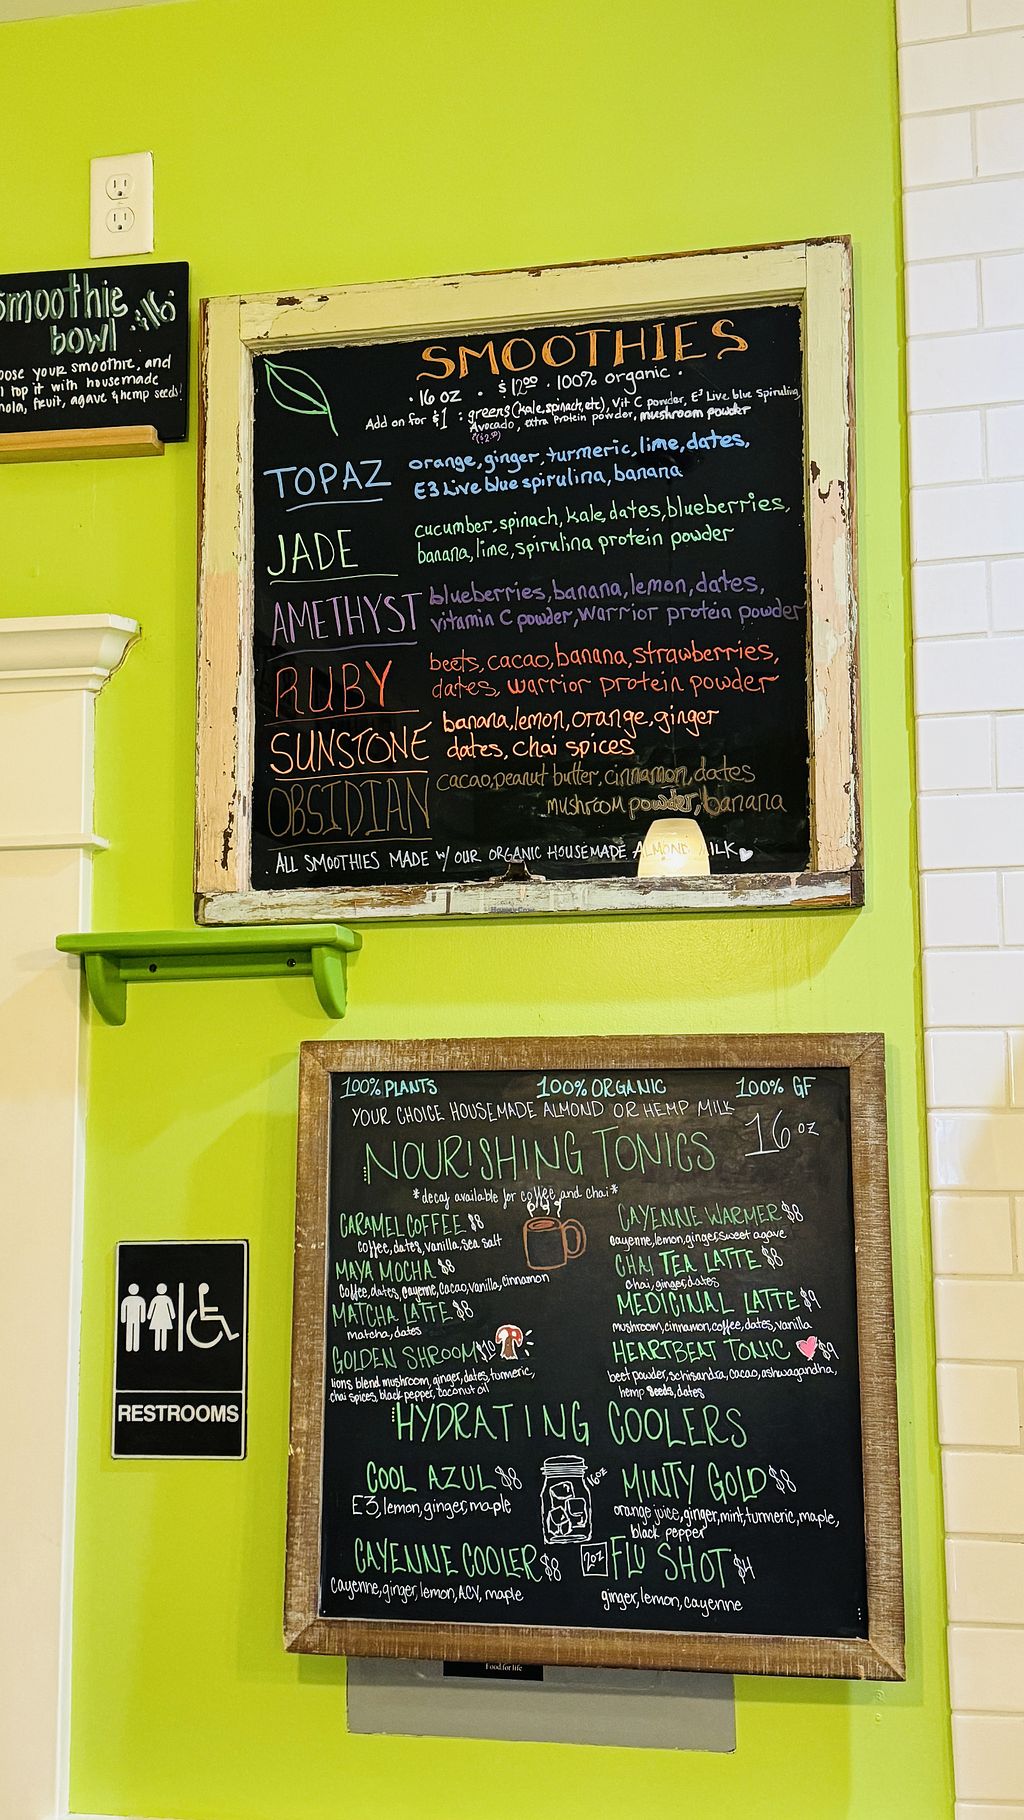 smoothie
bowl
your smoothie, and
top it with housemade
fruit, agave & hemp seeds!
SMOOTHIES
· 16 oz · $12.00 · 100% organic ·
Add on for $1 : greens (kale, spinach, etc), Vit C powder, E3 Live blue Spirulina,
Avocado, extra Protein powder, mushroom powder
(+$2.50)
TOPAZ orange, ginger, turmeric, lime, dates,
E3 Live blue spirulina, banana
JADE cucumber, spinach, kale, dates, blueberries,
banana, lime, spirulina protein powder
AMETHYST blueberries, banana, lemon, dates,
vitamin C powder, warrior protein powder
RUBY beets, cacao, banana, strawberries,
dates, warrior protein powder
SUNSTONE banana, lemon, orange, ginger
dates, chai spices
OBSIDIAN cacao, peanut butter, cinnamon, dates
mushroom powder, banana
ALL SMOOTHIES MADE w/ OUR ORGANIC HOUSEMADE ALMOND MILK
100% PLANTS 100% ORGANIC 100% GF
YOUR CHOICE HOUSEMADE ALMOND OR HEMP MILK
NOURISHING TONICS 16 oz
*decaf available for coffee and chai*
CARAMEL COFFEE $8
coffee, dates, vanilla, sea salt
MAYA MOCHA $8
coffee, dates, cayenne, cacao, vanilla, cinnamon
MATCHA LATTE $8
matcha, dates
GOLDEN SHROOM $10
lions blend mushroom, ginger, dates, turmeric,
chai spices, black pepper, coconut oil
CAYENNE WARMER $8
cayenne, lemon, ginger, sweet agave
CHAI TEA LATTE $8
chai, ginger, dates
MEDICINAL LATTE $9
mushroom, cinnamon, coffee, dates, vanilla
HEARTBEAT TONIC $9
beet powder, schisandra, cacao, ashwagandha,
hemp seeds, dates
HYDRATING COOLERS
COOL AZUL $8
E3, lemon, ginger, maple
16oz
MINTY GOLD $8
orange juice, ginger, mint, turmeric, maple,
black pepper
CAYENNE COOLER $8
cayenne, ginger, lemon, ACV, maple
2oz FLU SHOT $4
ginger, lemon, cayenne
RESTROOMS
Food for life